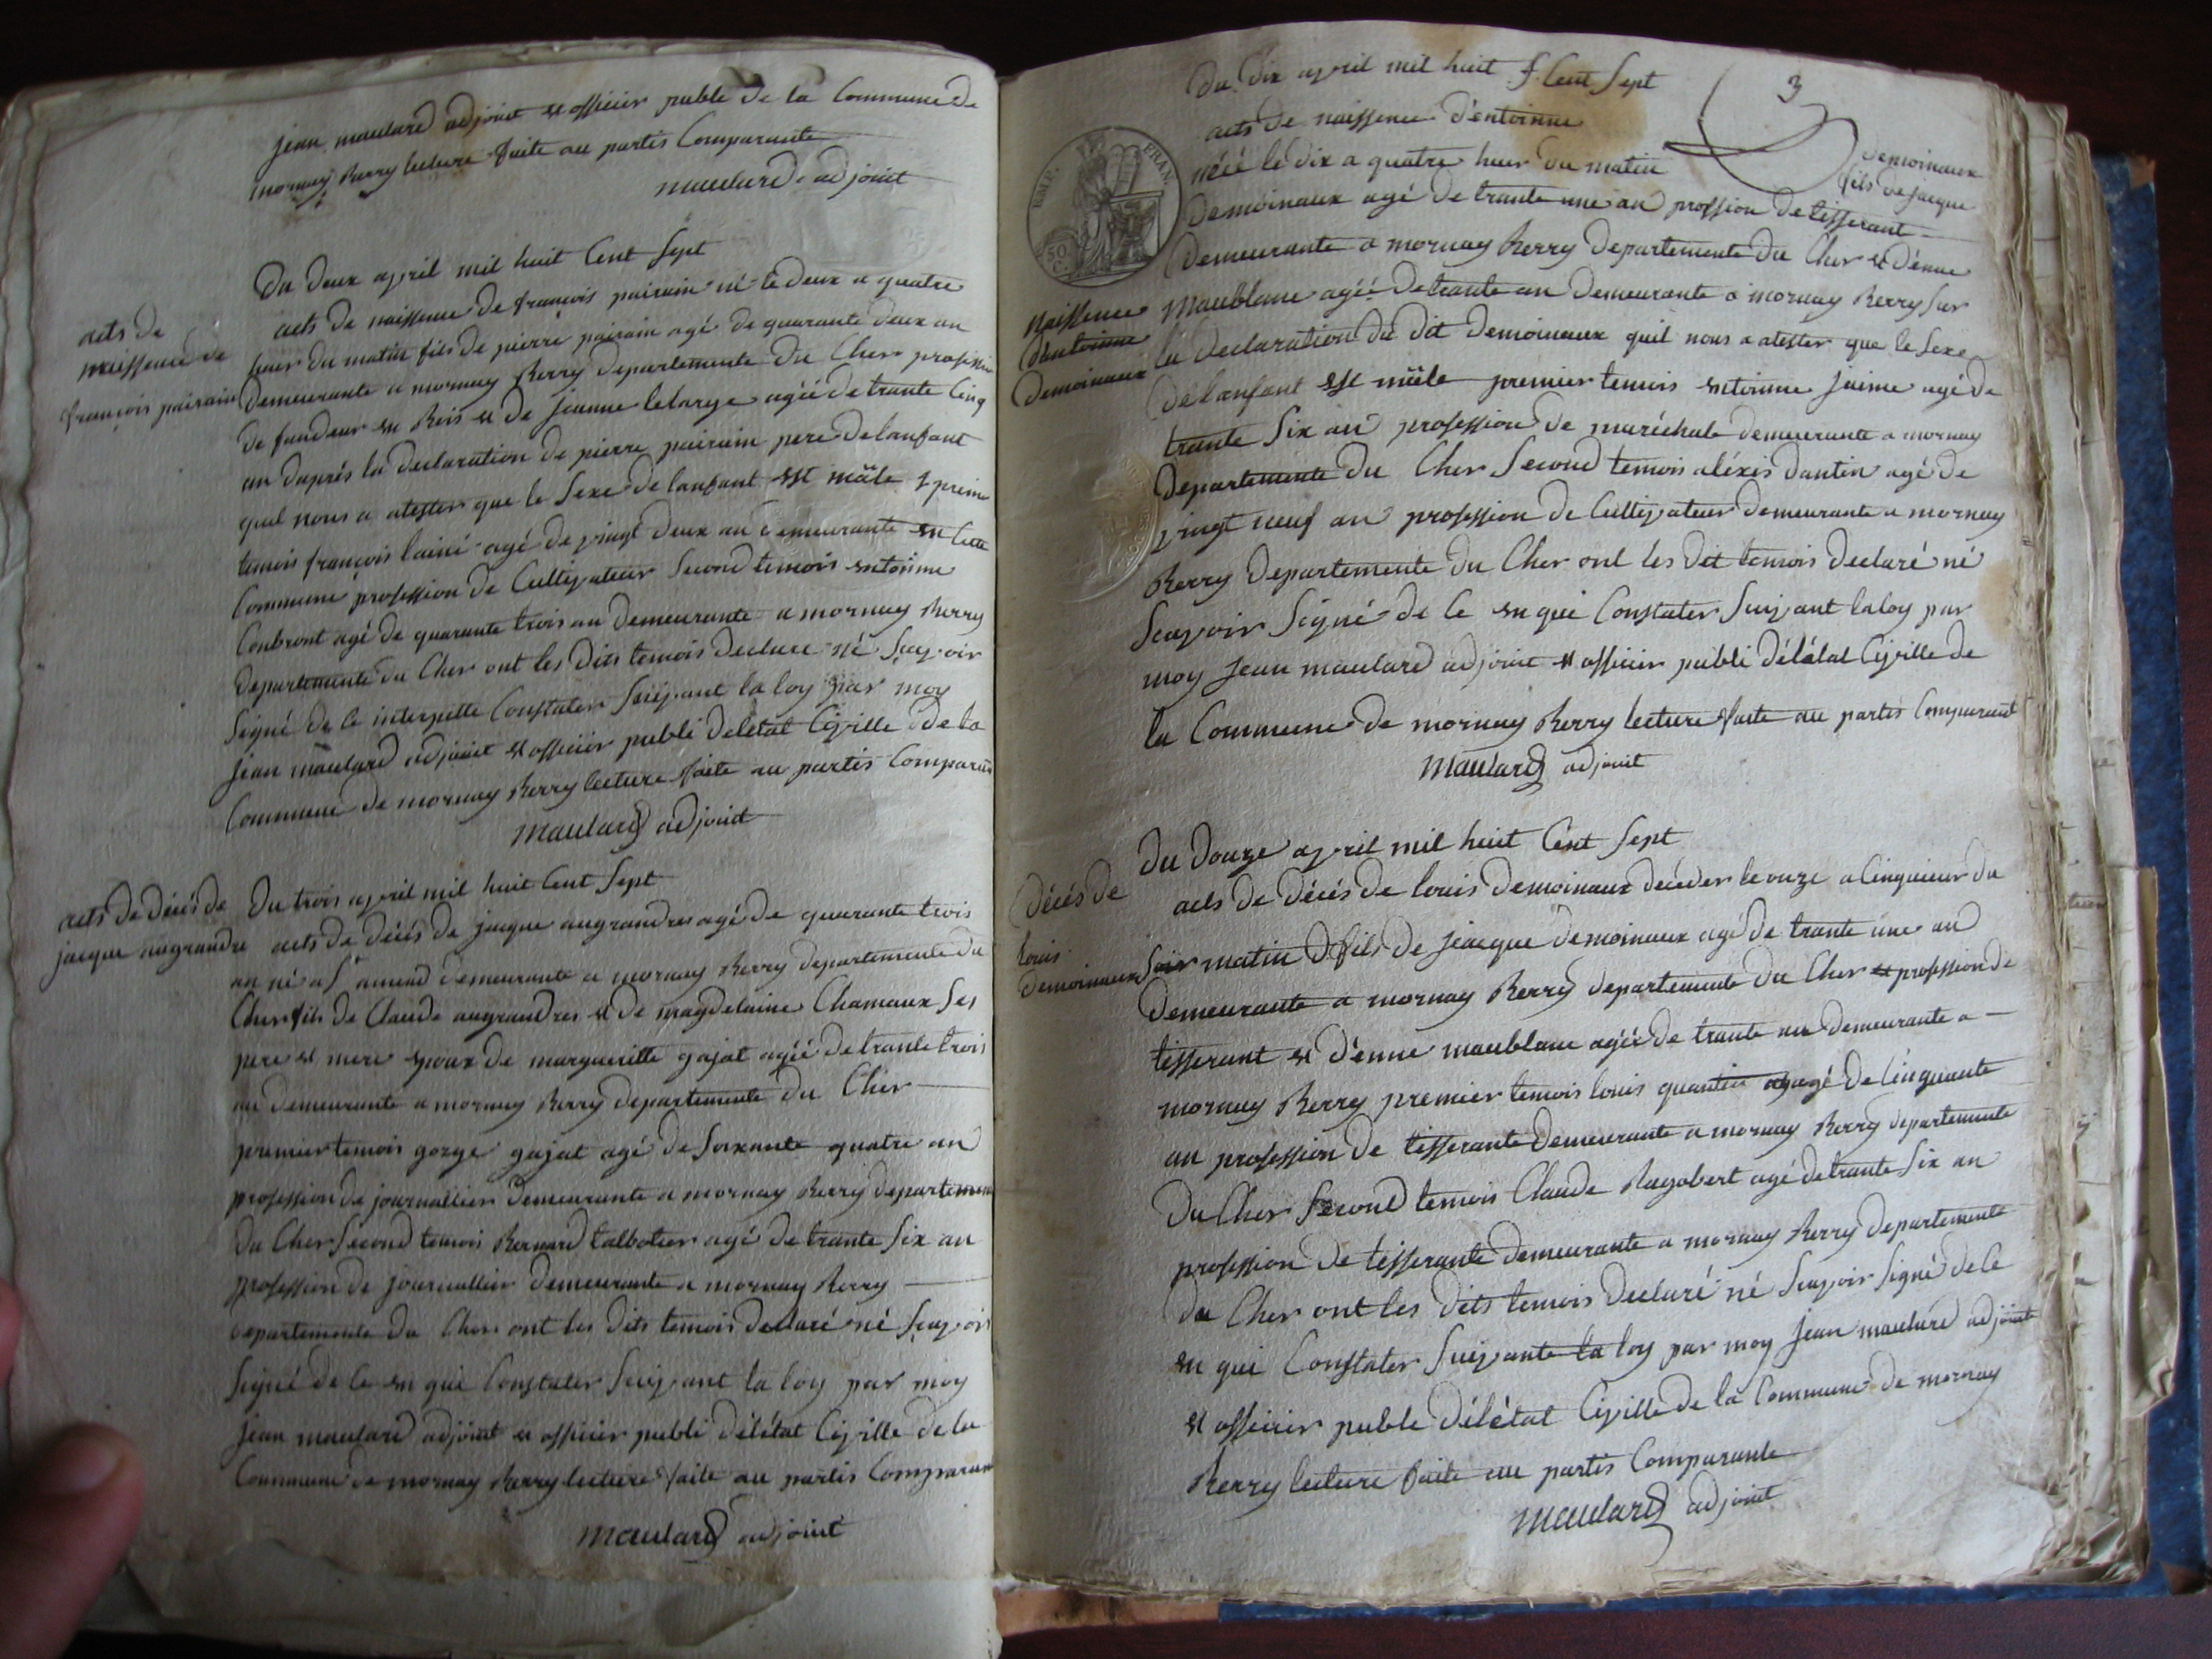 jean maulard adjoint et officier publc de la Commune de
mornay Berry lecture faite au partis Comparante
maulard adjoint
Du deux avril mil huit Cent Sept
acts de
naissence de
françois pairain
acts de naissence de françois pairain né le deux a quatre
heur du matin fils de pierre pairain agé de quarante deux an
Demeurante a mornay Berry departemente du Cher profession
de fandeur en Bois et de jeanne lelarge agéé de trante Cinq
an daprés la declaration de pierre pairain pere de lanfant
quel nous a atester que le Sexe de lanfant est mâle premier
temois françois lainé agé de vingt deux an demeurante en Cette
Commune profession de Cultivateur Second temois entoinne
Conbront agé de quarante trois an Demeurante a mornay Berry
departemente du Cher ont les dits temois declaré né Savoir
Signé de Ce interpelle Constater Suivant la loy par moy
jean maulard adjoint et officier publi deletat Civille de la
Commune de mornay Berry lecture faite au partis Comparan
maulard adjoint
acts de décés de
jacque augrandre
Du trois avril mil huit Cent Sept
acts de décés de jacque augrandres agé de quarante trois
an né a St amend demeurante a mornay Berry departemente du
Cher fils de Claude augrandres et de magdelaine Chamaux Ses
pere et mere epoux de margueritte gajat agéé de trante trois
an demeurante a mornay Berry departemente du Cher
premier temois gorge gajat agé de Soixante quatre an
profession de journallier demeurante a mornay Berry departemen
du Cher Second temois Bernard talbotier agé de trante Six an
profession de journallier demeurante a mornay Berry
departemente du Cher ont les dits temois declaré né Scavoir
Signé de Ce en qui Constater Suivant la loy par moy
jean maulard adjoint et officier publi délétat Civille de la
Commune de mornay Berry lecture faite au partis Comparan
maulard adjoint
3
Du dix avril mil huit Cent Sept
acts de naissence d'entoinne
demoinaux
fils de jacque
EMP. FRAN.
50 C.
néé le dix a quatre heur du matin
demoinaux agé de trante une an proffion de tisserant
Demeurante a mornay Berry departemente du Cher et d'enne
Naissence
dantoinne
demoinaux
maublanc agéé de trante an demeurante a mornay Berry Sur
la declaration du dit demoinaux quil nous a atester que le Sexe
de lanfant est mâle premier temois entoinne jaime agé de
trante Six an profession de maréchale demeurante a mornay
departemente du Cher Second temois aléxis dantin agé de
vingt neuf an profession de Cultivateur demeurante a mornay
Berry departemente du Cher ont les dit temois declaré né
Scavoir Signé de Ce en qui Constater Suivant la loy par
moy jean maulard adjoint et officier publi délétat Civille de
la Commune de mornay Berry lecture faite au partis Comparant
maulard adjoint
Du douze avril mil huit Cent Sept
Décés de
louis
demoinaux
acts de décés de louis demoinaux decéder le onze a Cinq heur du
Soir matin fils de jeacque demoinaux agé de trante une an
demeurante a mornay Berry departemente du Cher et profession de
tisserant et d'enne maublanc agéé de trante an demeurante a
mornay Berry premier temois louis quantin agé de Cinquante
an profession de tisserante demeurante a mornay Berry departemente
du Cher Second temois Claude Ragobert agé de trante Six an
profession de tisserante demeurante a mornay Berry departemente
du Cher ont les dits temois declaré né Scavoir Signé de Ce
en qui Constater Suivante la loy par moy jean maulard adjointe
et officier publc délétat Civille de la Commune de mornay
Berry lecture faite au partis Comparante
maulard adjoint